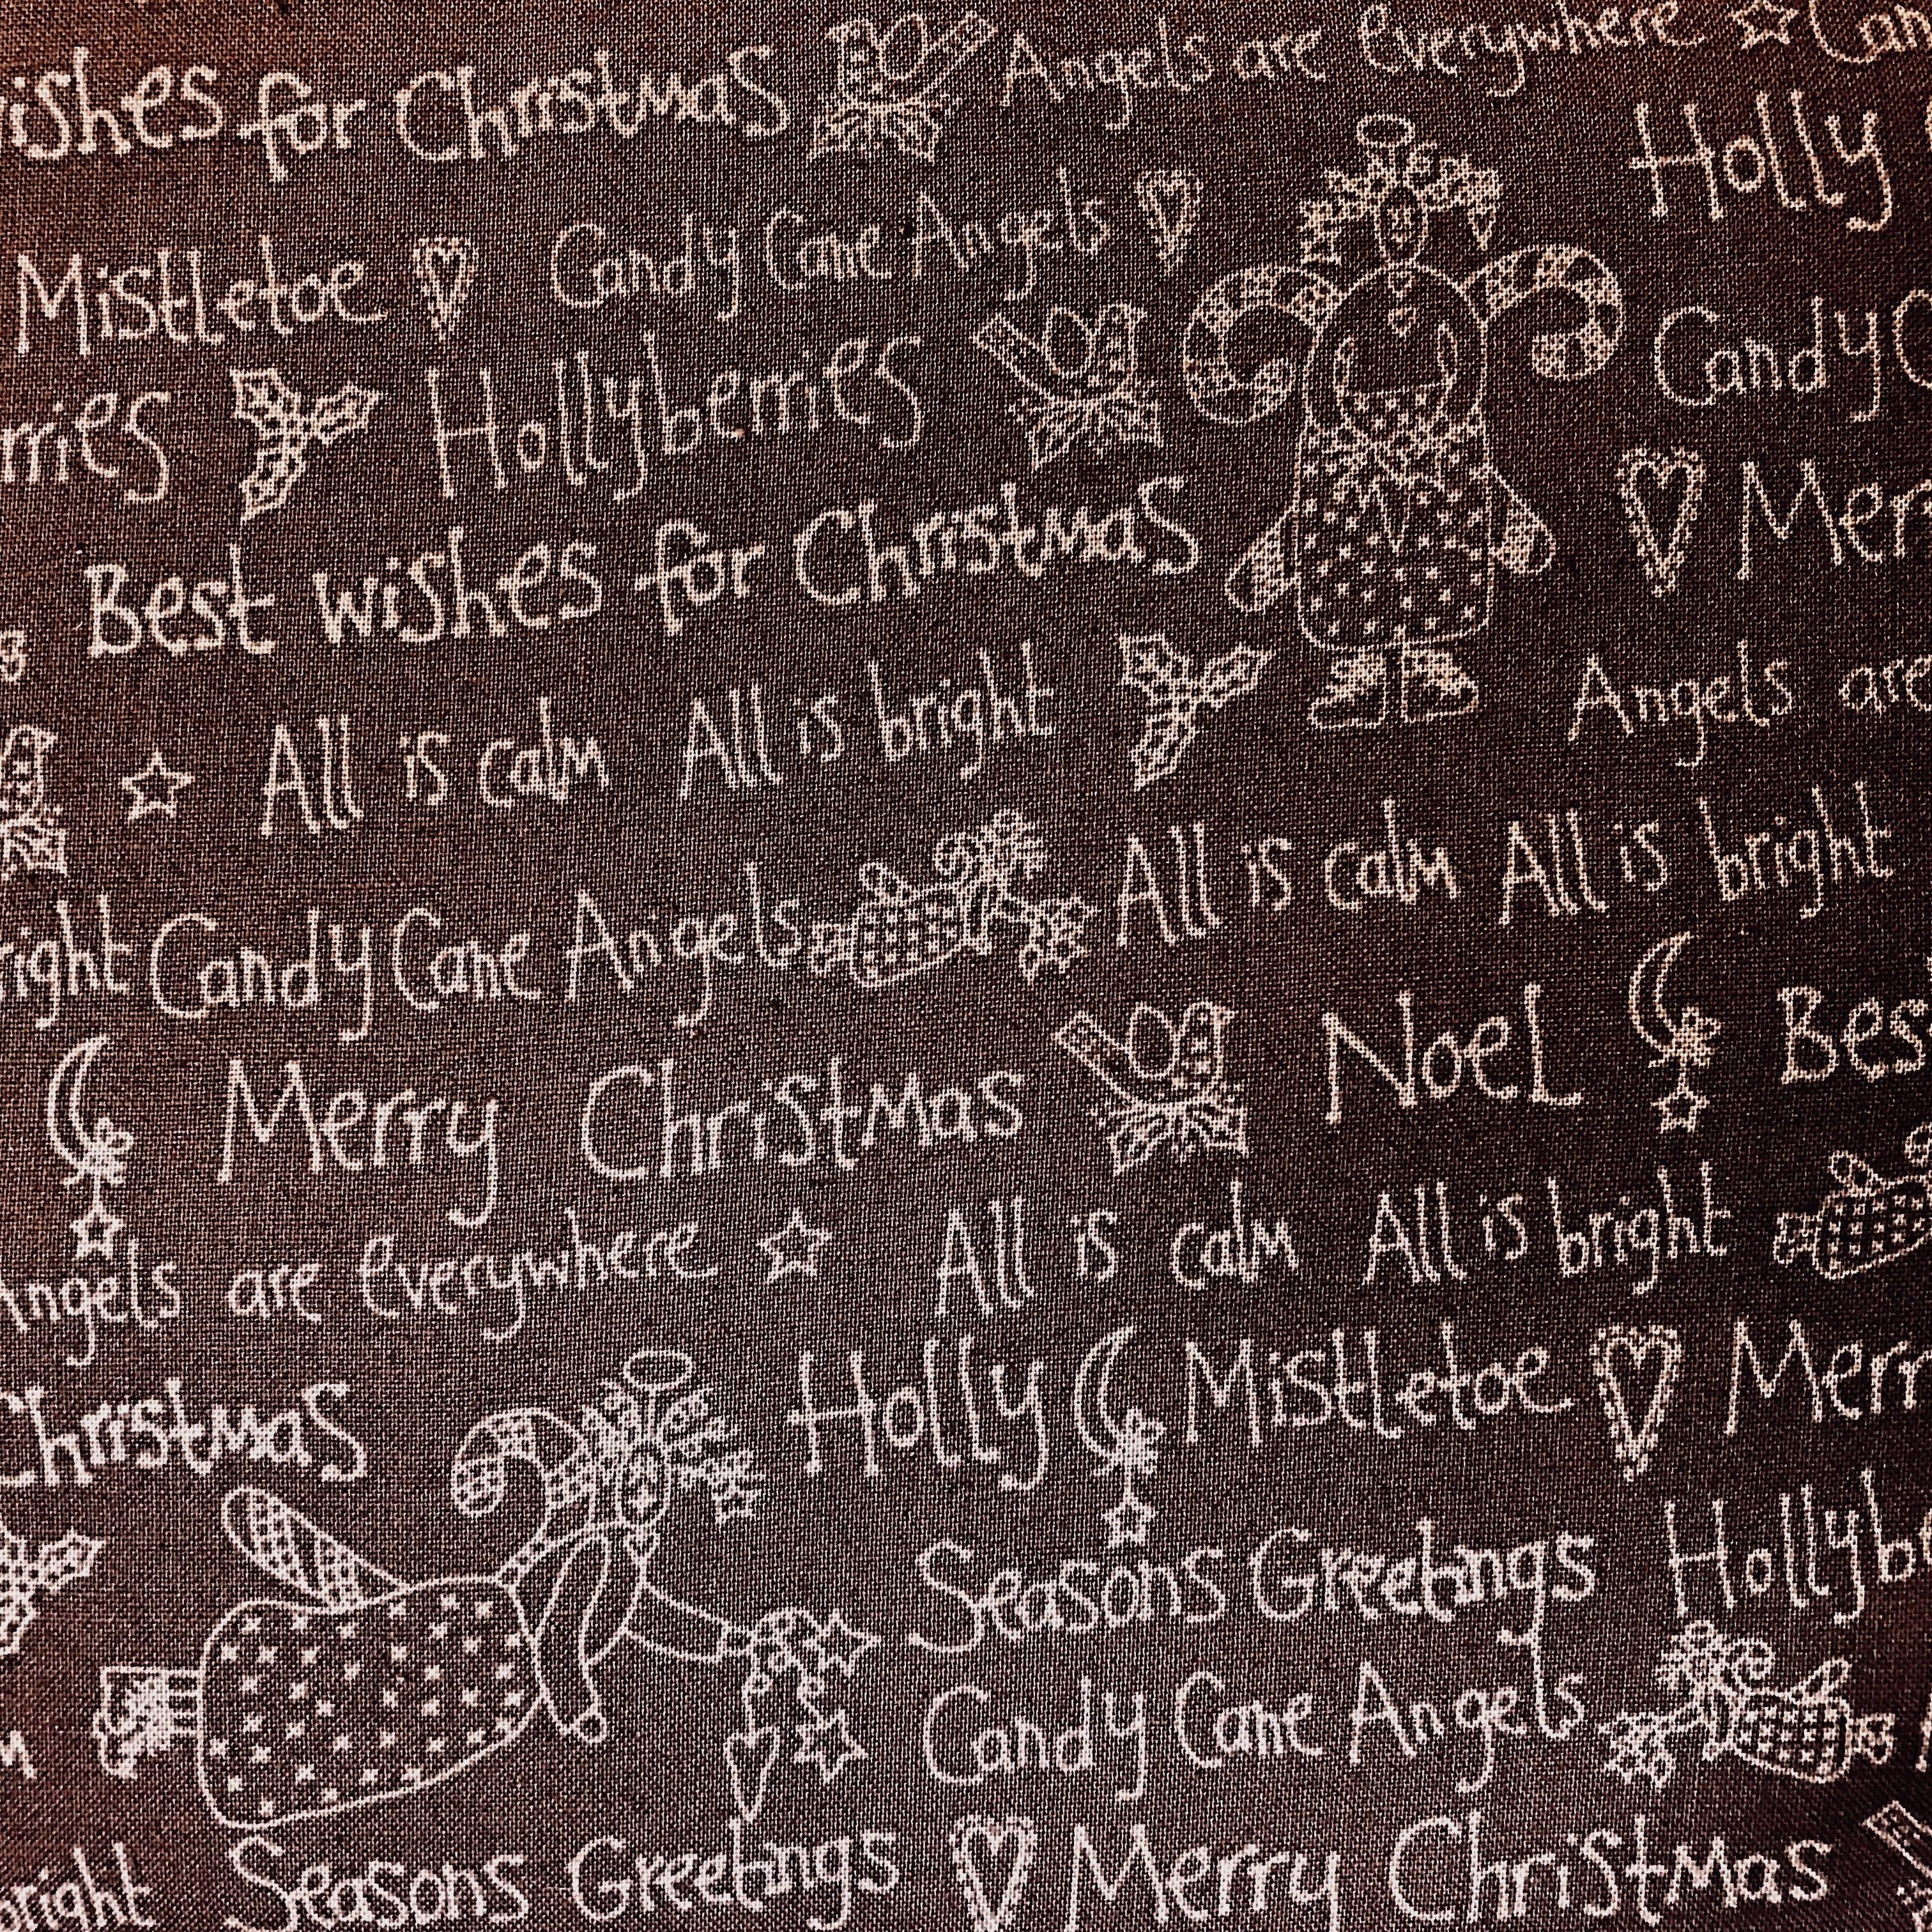 ishes for Christmas Angels are Everywhere Can
Holly
Mistletoe Candy Cane Angels
Candy C
rries Hollyberries
Mer
Best wishes for Christmas
Angels are
All is calm All is bright
All is calm All is bright
right Candy Cane Angels
Noel Bes
Merry Christmas
All is calm All is bright
Angels are Everywhere
Holly Mistletoe Merr
Christmas
Seasons Greetings Hollyb
Candy Cane Angels
right Seasons Greetings Merry Christmas